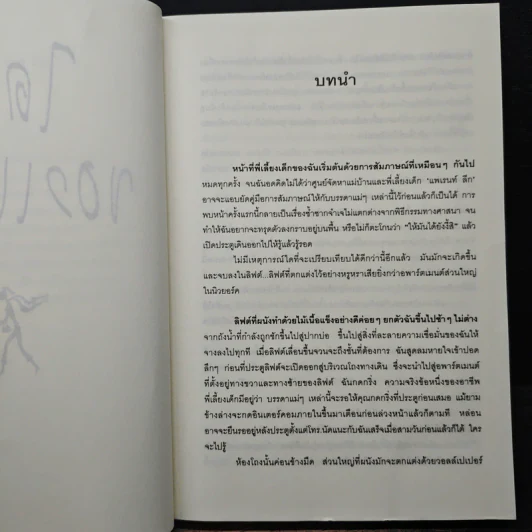 บทนำ
หน้าที่พี่เลี้ยงเด็กของฉันเริ่มต้นด้วยการสัมภาษณ์ที่เหมือนๆ กันไป
หมดทุกครั้ง จนฉันอดคิดไม่ได้ว่าศูนย์จัดหาแม่บ้านและพี่เลี้ยงเด็ก 'แพเรนท์ ลีก'
อาจจะแอบยัดคู่มือการสัมภาษณ์ให้กับบรรดาแม่ๆ เหล่านี้ไว้ก่อนแล้วก็เป็นได้ การ
พบหน้าครั้งแรกนี้กลายเป็นเรื่องซ้ำซากจำเจไม่แตกต่างจากพิธีกรรมทางศาสนา จน
ทำให้ฉันอยากจะทรุดตัวลงกราบอยู่บนพื้น หรือไม่ก็ตะโกนว่า "ให้มันได้ยังงี้สิ" แล้ว
เปิดประตูเดินออกไปให้รู้แล้วรู้รอด
ไม่มีเหตุการณ์ใดที่จะเปรียบเทียบได้ดีกว่านี้อีกแล้ว มันมักจะเกิดขึ้น
และจบลงในลิฟต์...ลิฟต์ที่ตกแต่งไว้อย่างหรูหราเสียยิ่งกว่าอพาร์ตเมนต์ส่วนใหญ่
ในนิวยอร์ค
ลิฟต์ที่ผนังทำด้วยไม้เนื้อแข็งอย่างดีค่อยๆ ยกตัวฉันขึ้นไปช้าๆ ไม่ต่าง
จากถังน้ำที่กำลังถูกชักขึ้นไปสู่ปากบ่อ ขึ้นไปสู่สิ่งที่ละลายความเชื่อมั่นของฉันให้
จางลงไปทุกที เมื่อลิฟต์เลื่อนขึ้นจวนจะถึงชั้นที่ต้องการ ฉันสูดลมหายใจเข้าปอด
ลึกๆ ก่อนที่ประตูลิฟต์จะเปิดออกสู่บริเวณโถงทางเดิน ซึ่งจะนำไปสู่อพาร์ตเมนต์
ที่ตั้งอยู่ทางขวาและทางซ้ายของลิฟต์ ฉันกดกริ่ง ความจริงข้อหนึ่งของอาชีพ
พี่เลี้ยงเด็กมีอยู่ว่า บรรดาแม่ๆ เหล่านี้จะรอให้คุณกดกริ่งที่ประตูก่อนเสมอ แม้ยาม
ข้างล่างจะกดอินเตอร์คอมภายในขึ้นมาเตือนก่อนล่วงหน้าแล้วก็ตามที หล่อน
อาจจะยืนรออยู่หลังประตูตั้งแต่โทร.นัดแนะกับฉันเสร็จเมื่อสามวันก่อนแล้วก็ได้ ใคร
จะไปรู้
ห้องโถงนั้นค่อนข้างมืด ส่วนใหญ่ที่ผนังมักจะตกแต่งด้วยวอลล์เปเปอร์